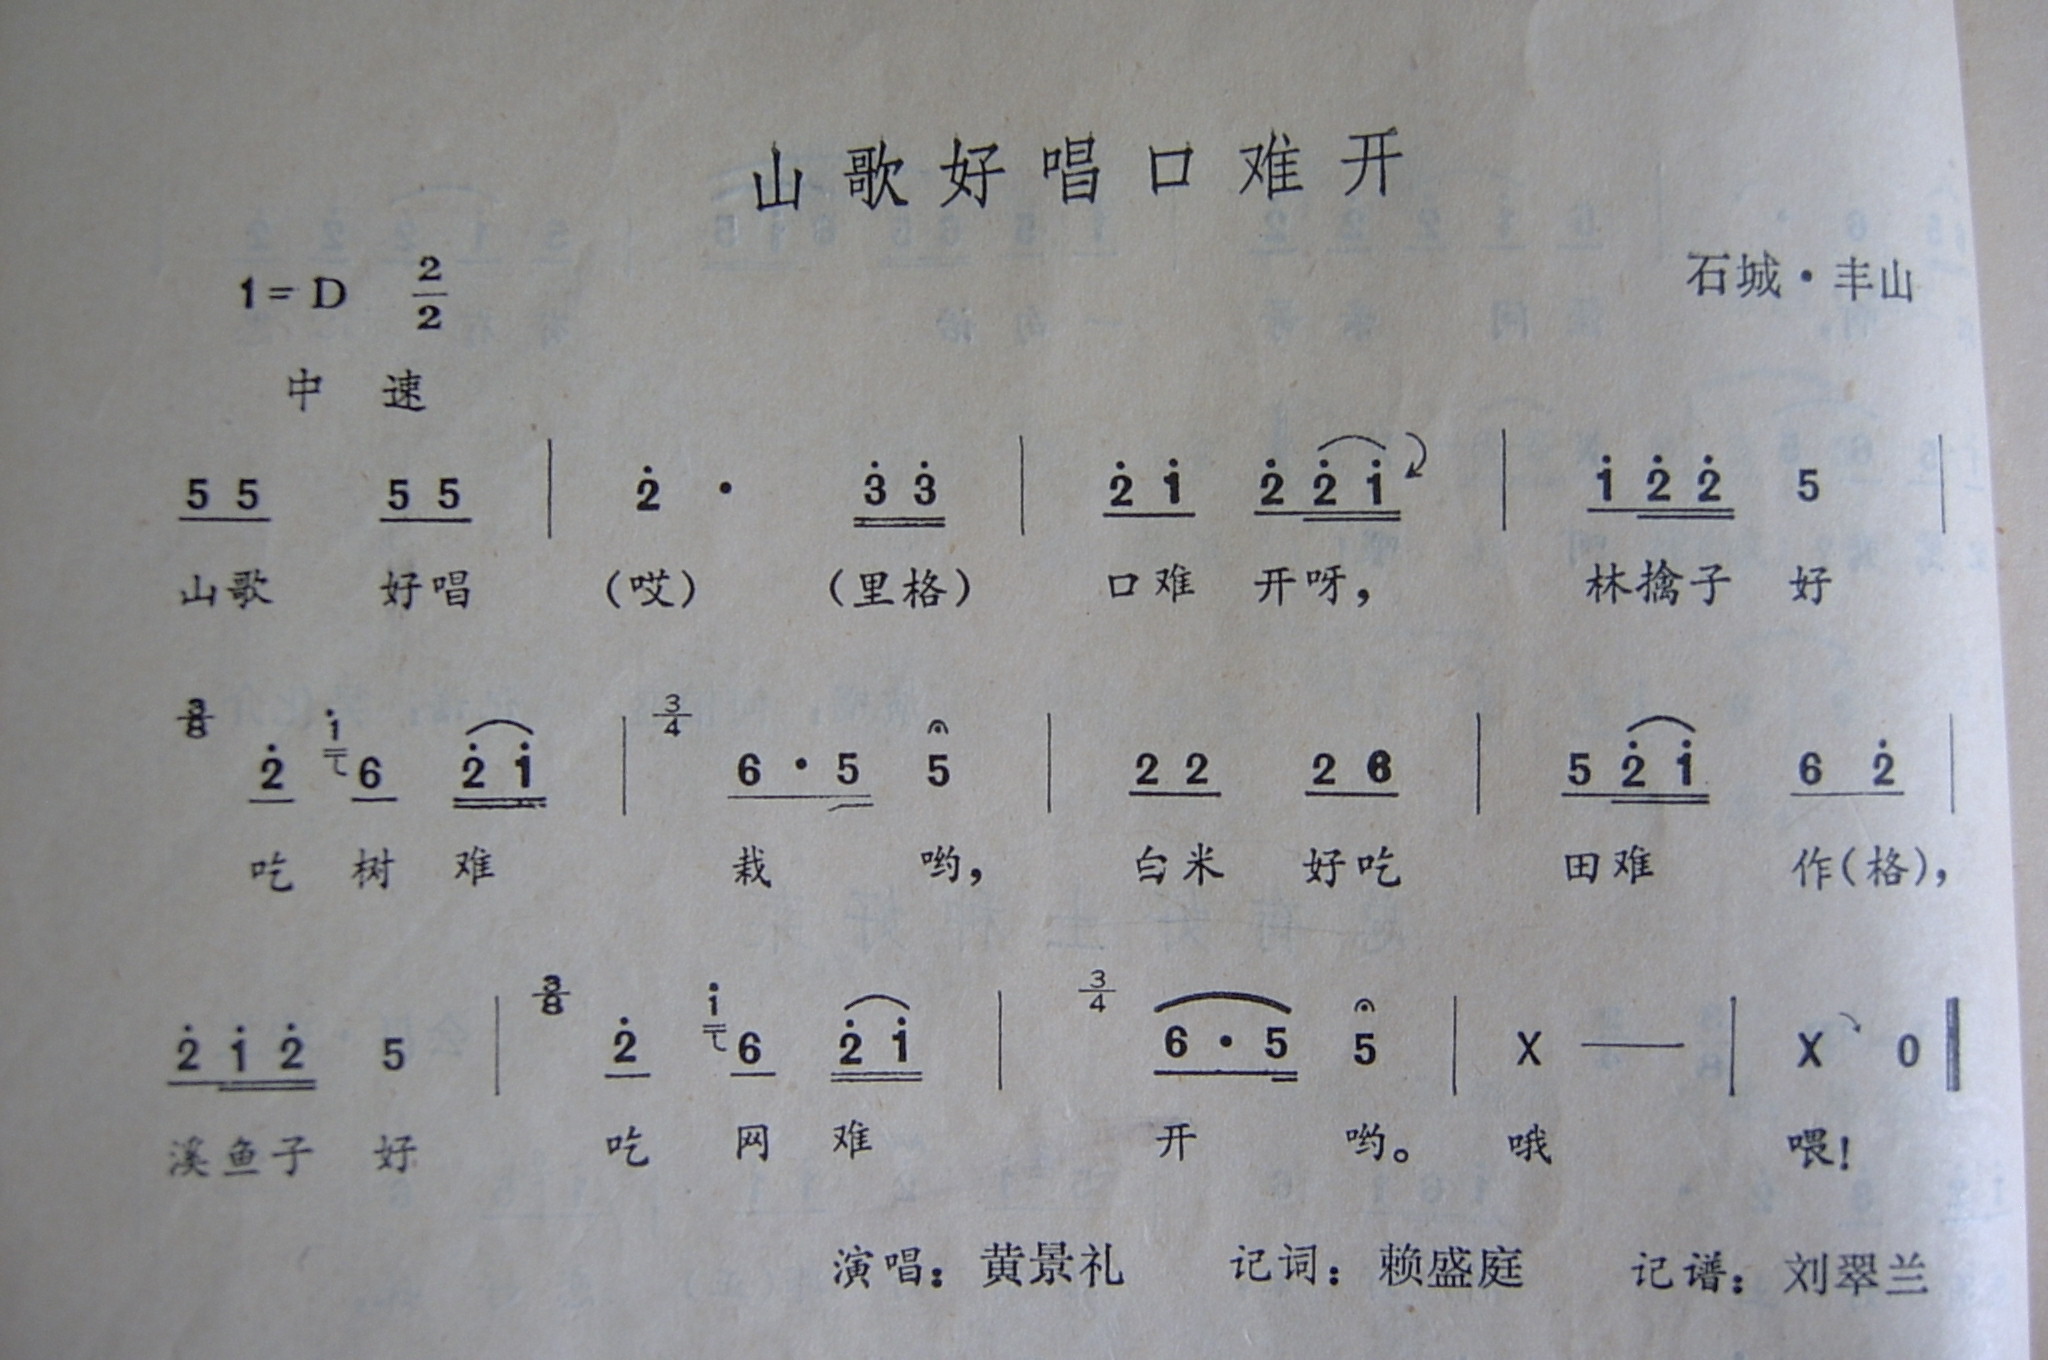 山歌好唱口难开
石城·丰山
1=D 2/2
中速
5 5 5 5 | 2̇ · 3̇ 3̇ | 2̇ 1̇ 2̇ 2̇ 1̇ | 1̇ 2̇ 2̇ 5 |
山歌 好唱 (哎) (里格) 口难 开呀, 林擒子 好
3/8 2̇ 1̇ 6 2̇ 1̇ | 3/4 6 · 5 5 | 2 2 2 6 | 5 2̇ 1̇ 6 2̇ |
吃 树 难 栽 哟, 白米 好吃 田难 作(格),
2̇ 1̇ 2̇ 5 | 3/8 2̇ 1̇ 6 2̇ 1̇ | 3/4 6 · 5 5 | X — | X 0
溪鱼子 好 吃 网 难 开 哟。 哦 喂!
演唱: 黄景礼 记词: 赖盛庭 记谱: 刘翠兰